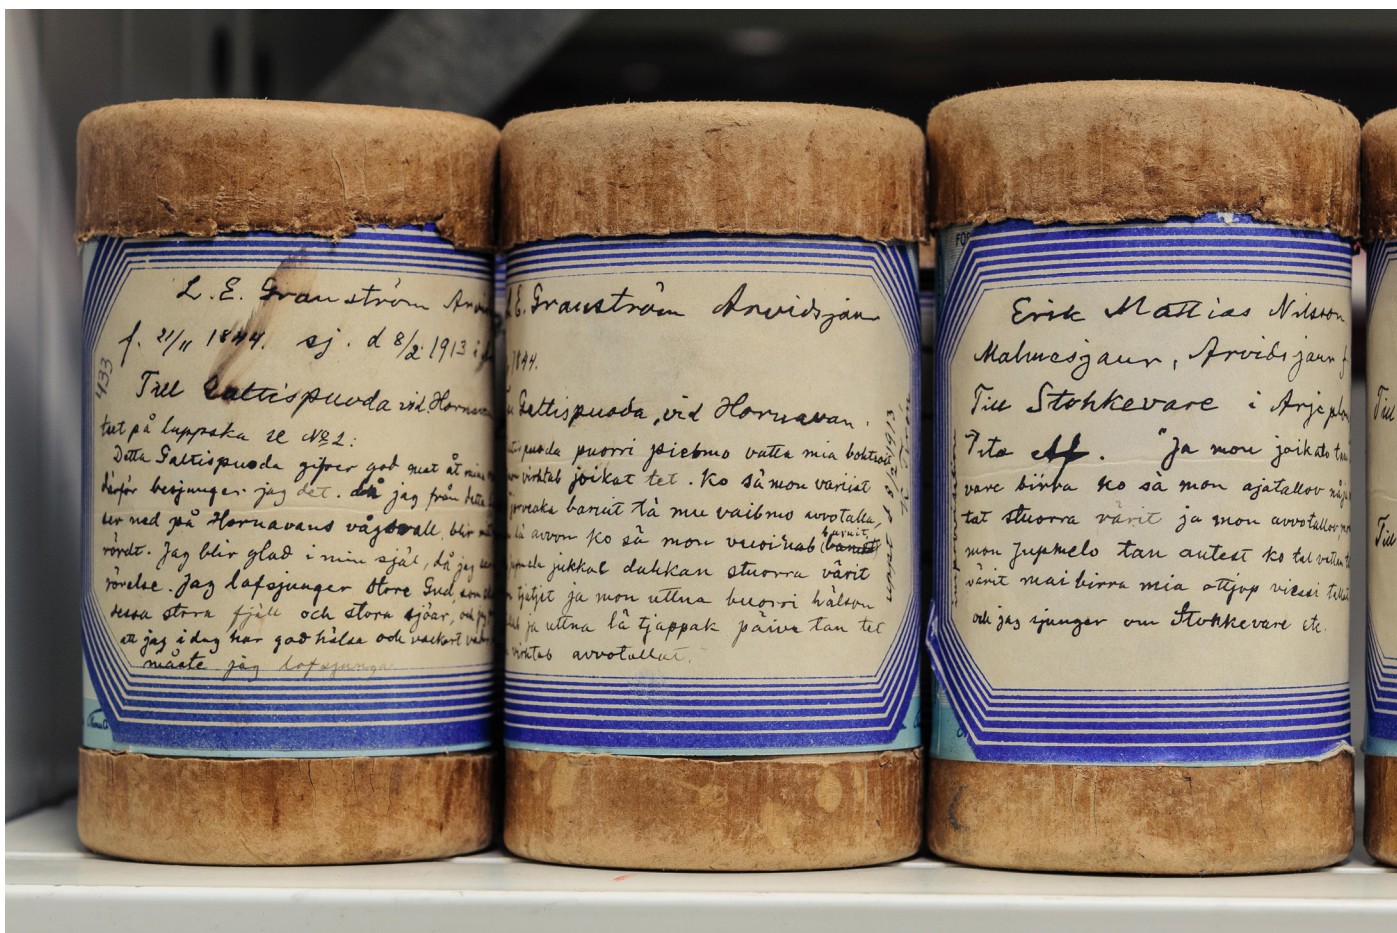 L. E. Granström
f. 21/11 1844. sj. d 8/2 1913 i
Till Galtispuoda vid Hornavan
text på lappska se № 2:
Detta Galtispuoda gifver god mat åt mina
därför besjunger jag det. då jag från detta
ser ned på Hornavans vågsvall, blir
rördt. Jag blir glad i min själ, då jag
rörelse. Jag lofsjunger Store Gud, som
dessa stora fjäll och stora sjöar, och jag
att jag i dag har god hälsa och vackert
måste jag lofsjunga
433
L. E. Granström Arvidsjaur
1844.
Galtispuoda, vid Hornavan.
puorri piebmo vatta mia
virhtab joikat tet. Ko sä mon variist
baruit tä mu vaibmo avvotalla,
lä avvon ko sä mon vuoihab baruit,
jukkat dahkan stuorra värit
ja mon uttna buorri hälson
ja uttna lä tjappak päiva tan tet
virhtab avvotallat.
uppt d 8/2 1913
K. Tirén
Erik Mattias Nilsson
Malmesjaur, Arvidsjaur f.
Till Stohkevare i Arjeplog
"Ja mon joikato
vare birra ko sä mon ajatallov
tat stuorra värit ja mon avvotallov
mon Jupmelo tan autest ko tal
värit mai birra mia ottjop viessi
och jag sjunger om Stohkevare etc.
Till
Till